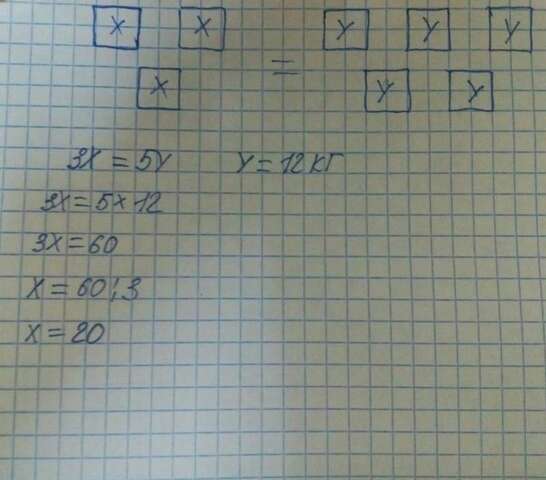 X X = Y Y Y
X Y Y
3X = 5Y Y = 12 кг
3X = 5 x 12
3X = 60
X = 60 : 3
X = 20